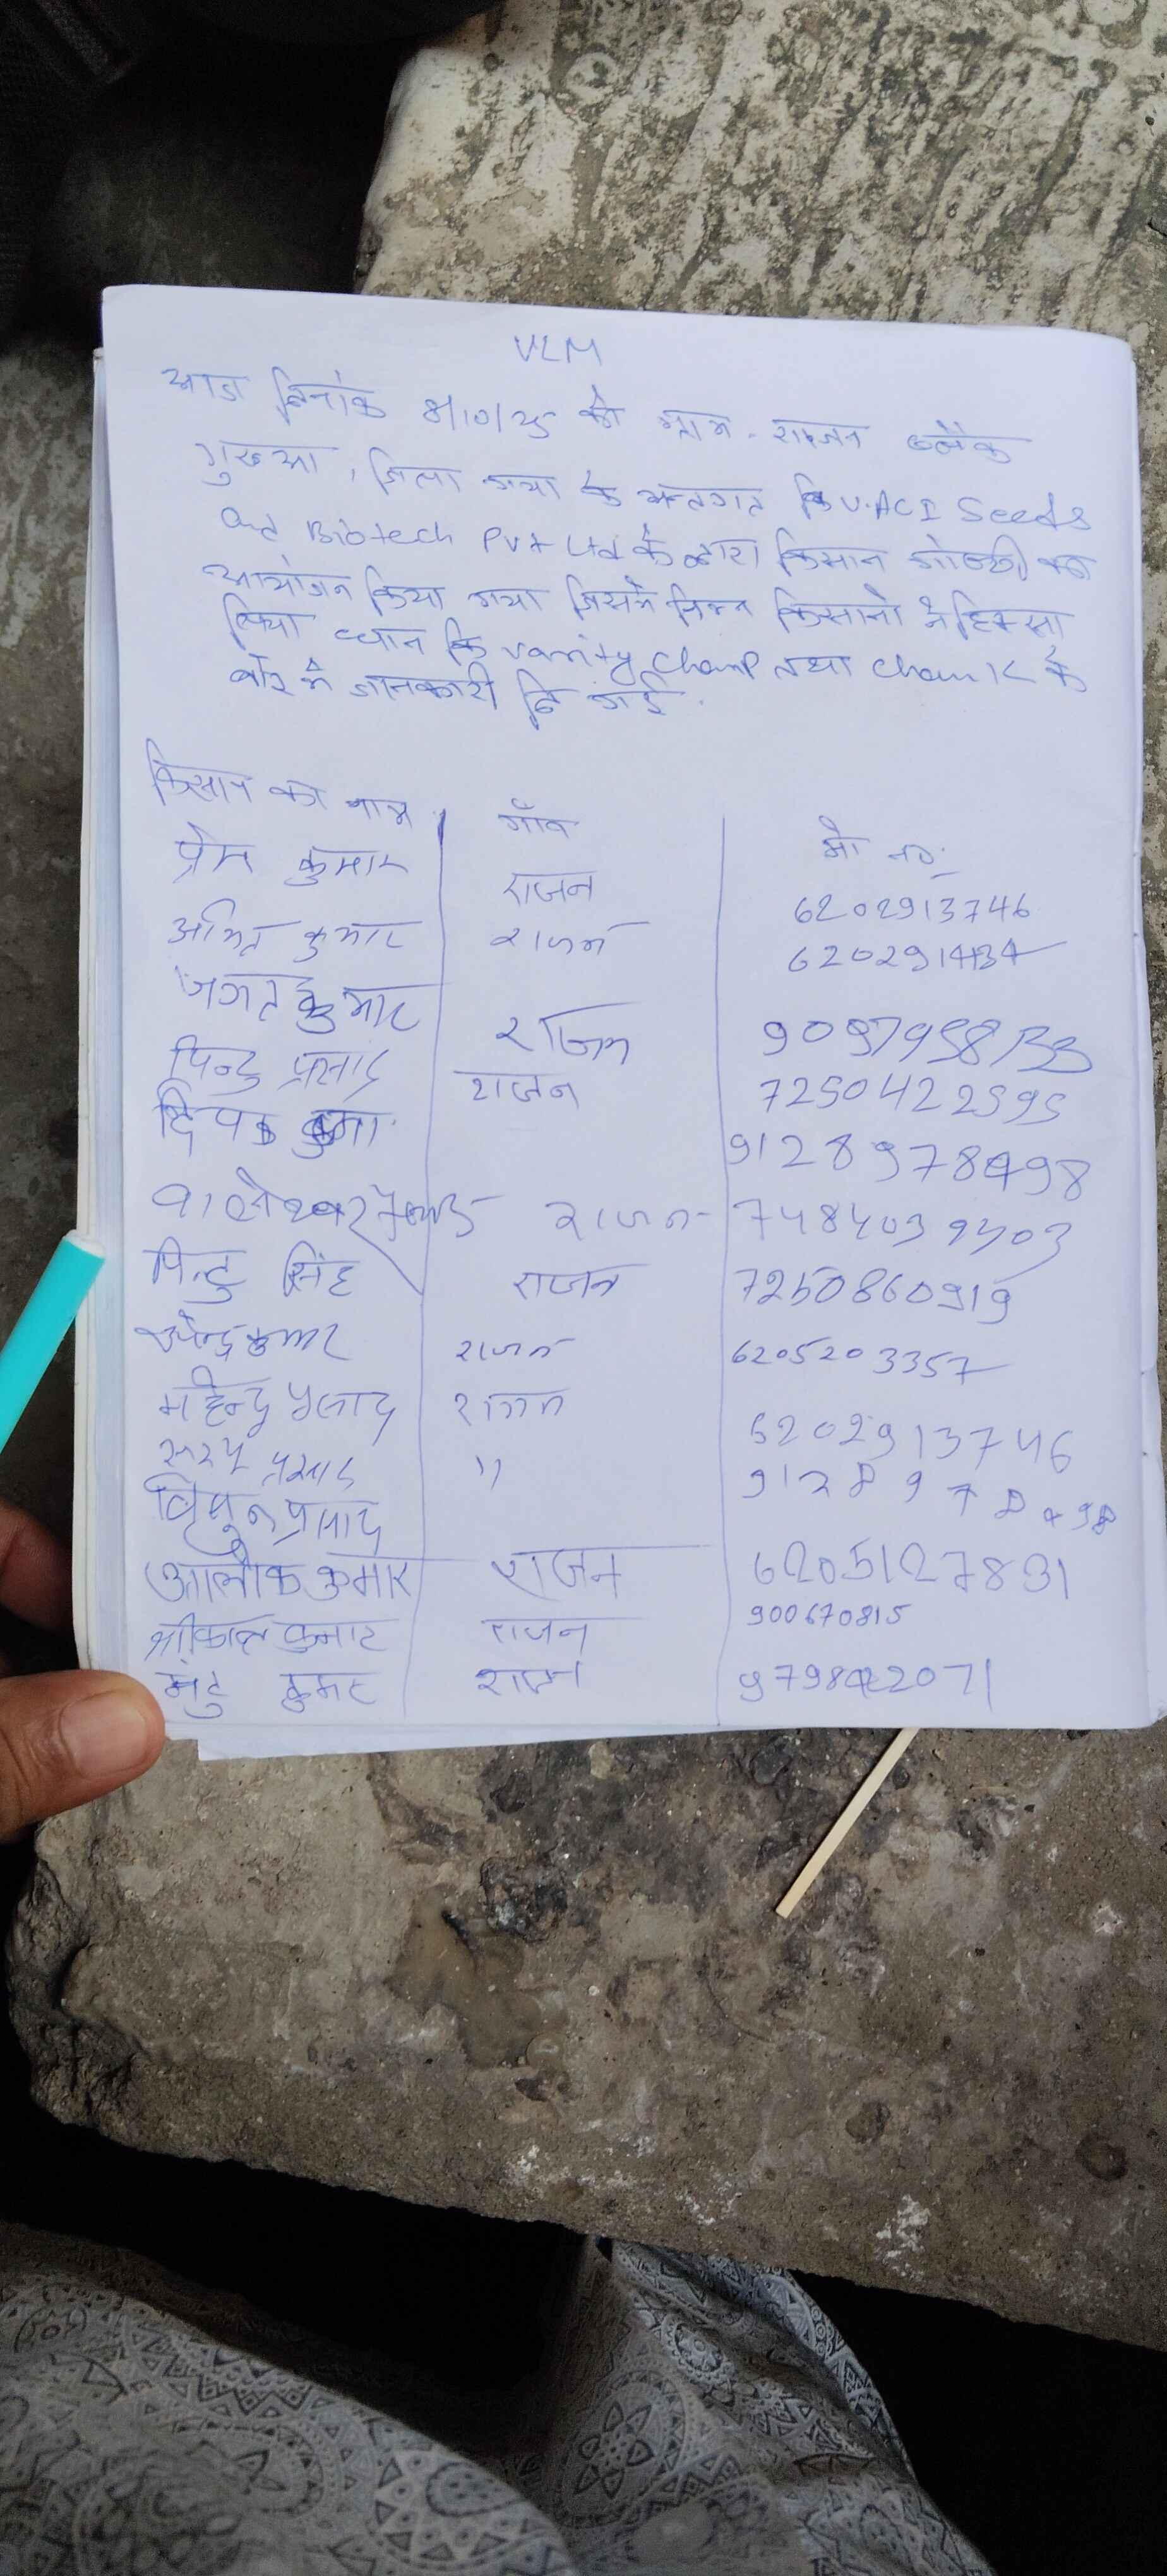 VLM
आज दिनांक 8/10/25 को ग्राम - राजन ब्लॉक
गुरुआ, जिला गया के अन्तगत कि U.ACI Seeds
and Biotech Pvt Ltd के द्वारा किसान गोष्ठी का
आयोजन किया गया जिसमे निम्न किसानो ने हिस्सा
लिया धान कि varity Champ तथा Chamk के
बारे मे जानकारी दि गई.
किसान का नाम गाँव मो न०.
प्रेम कुमार राजन 6202913746
अमित कुमार राजन 6202914434
जगत कुमार राजन
पिन्टु प्रसाद राजन 7250422595
दिपक कुमा. 9128978498
राजन 7484039403
पिन्टु सिंह राजन 7250860919
उपेन्द्र कुमार राजन 6205203357
महेन्द्र प्रसाद राजन 6202913746
सरयु प्रसाद " 9128978498
प्रसाद
आलोक कुमार राजन 6205127831
श्रीकान्त कुमार राजन 900670815
मंटु कुमार राजन